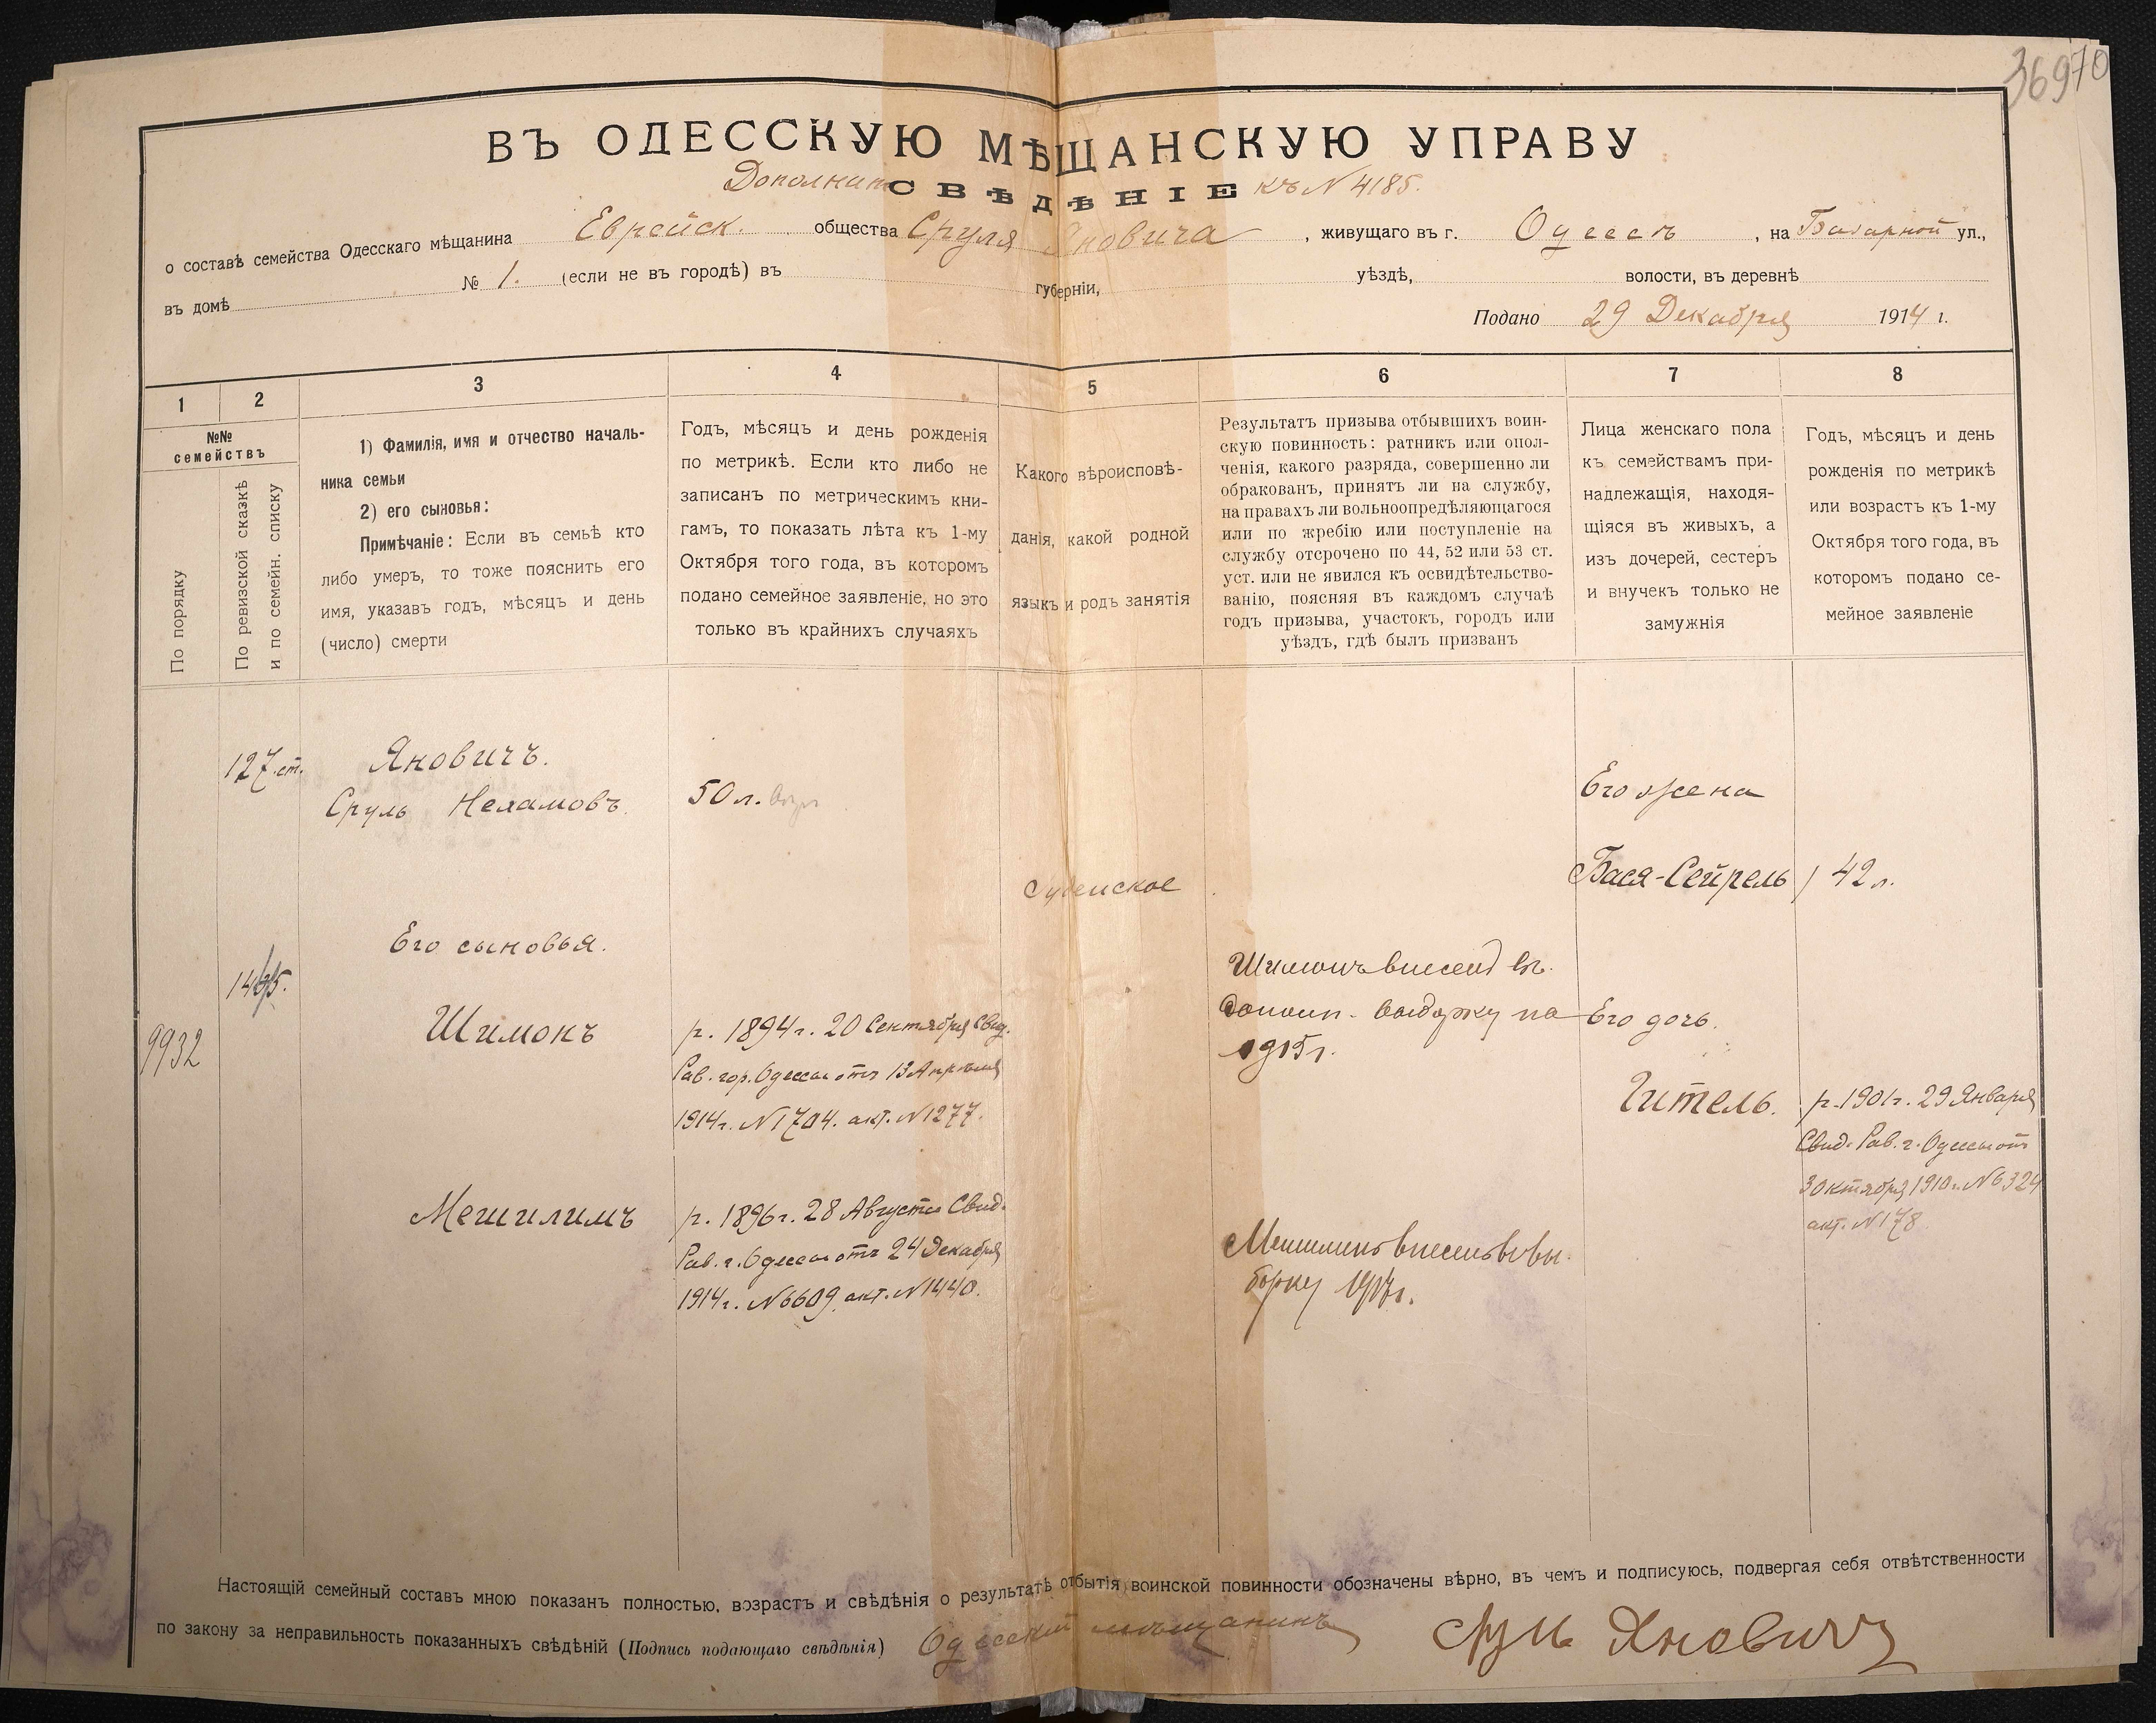 36970
ВЪ ОДЕССКУЮ МѢЩАНСКУЮ УПРАВУ
Дополнит СВѢДѢНІЕ къ N 4185.
о составѣ семейства Одесскаго мѣщанина Еврейск. общества Сруля Яновича, живущаго въ г. Одессѣ, на Базарной ул.,
въ домѣ № 1. (если не въ городѣ) въ губерніи, уѣздѣ, волости, въ деревнѣ
Подано 29 Декабря 1914 г.
1 2 3 4 5 6 7 8
№№
семействъ
По порядку
По ревизской сказкѣ
и по семейн. списку
1) Фамилія, имя и отчество началь-
ника семьи
2) его сыновья:
Примѣчаніе: Если въ семьѣ кто
либо умеръ, то тоже пояснить его
имя, указавъ годъ, мѣсяцъ и день
(число) смерти
Годъ, мѣсяцъ и день рожденія
по метрикѣ. Если кто либо не
записанъ по метрическимъ кни-
гамъ, то показать лѣта къ 1-му
Октября того года, въ которомъ
подано семейное заявленіе, но это
только въ крайнихъ случаяхъ
Какого вѣроисповѣ-
данія, какой родной
языкъ и родъ занятія
Результатъ призыва отбывшихъ воин-
скую повинность: ратникъ или опол-
ченія, какого разряда, совершенно ли
обракованъ, принятъ ли на службу,
на правахъ ли вольноопредѣляющагося
или по жребію или поступленіе на
службу отсрочено по 44, 52 или 53 ст.
уст. или не явился къ освидѣтельство-
ванію, поясняя въ каждомъ случаѣ
годъ призыва, участокъ, городъ или
уѣздъ, гдѣ былъ призванъ
Лица женскаго пола
къ семействамъ при-
надлежащія, находя-
щіяся въ живыхъ, а
изъ дочерей, сестеръ
и внучекъ только не
замужнія
Годъ, мѣсяцъ и день
рожденія по метрикѣ
или возрастъ къ 1-му
Октября того года, въ
которомъ подано се-
мейное заявленіе
127 ст.
Яновичъ.
Сруль Нехамовъ
50 л.
Его жена
Бася-Сейрель 42 л.
Іудейское
Его сыновья.
9932
Шимонъ
р. 1894 г. 20 Сентября Свид.
Рав. гор. Одессы отъ 13 Апрѣля
1914 г. N 1704. акт. N 1277.
Шимонъ внесенъ въ
дополн. выборку на
1915 г.
Его дочь.
Гитель.
р. 1901 г. 29 Января
Свид. Рав. г. Одессы отъ
3 Октября 1910 г. N 6324
акт. N 178
Мешилимъ
р. 1896 г. 28 Августа Свид.
Рав. г. Одессы отъ 24 Декабря
1914 г. N 6609 акт. N 1440.
Мешилимъ внесенъ въ вы-
борку 1917 г.
Настоящій семейный составъ мною показанъ полностью, возрастъ и свѣдѣнія о результатѣ отбытія воинской повинности обозначены вѣрно, въ чемъ и подписуюсь, подвергая себя отвѣтственности
по закону за неправильность показанныхъ свѣдѣній (Подпись подающаго свѣдѣнія) Одесскій мѣщанинъ Сруль Яновичъ